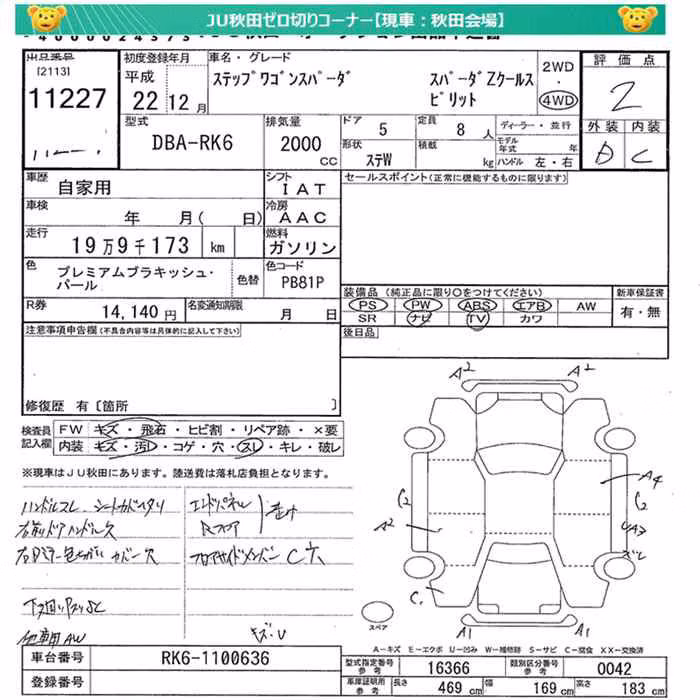 JU秋田ゼロ切りコーナー【現車：秋田会場】
出品番号
[2113]
11227
初度登録年月
平成
22 12月
車名・グレード
ステップワゴンスパーダ
スパーダZクールス
ピリット
2WD
・
4WD
評価点
2
外装 内装
D C
型式
DBA-RK6
排気量
2000
CC
ドア 5
定員 8 人
ディーラー・並行
形状 ステW
積載 kg
モデル年式 年
ハンドル 左・右
車歴
自家用
シフト
IAT
セールスポイント(正常に機能するものに限ります)
車検
年 月( 日)
冷房
AAC
走行
19万9千173 km
燃料
ガソリン
色
プレミアムブラキッシュ・
パール
色替
色コード
PB81P
R券
14,140円
名変通知期限
月 日
装備品 (純正品に限り○をつけてください)
PS PW ABS エアB AW
SR ナビ TV カワ
新車保証書
有・無
後日品
注意事項申告欄(不具合内容等は具体的に記入して下さい)
修復歴 有〔箇所 〕
検査員
記入欄
FW キズ・飛石・ヒビ割・リペア跡・×要
内装 キズ・汚レ・コゲ・穴・スレ・キレ・破レ
※現車はJU秋田にあります。陸送費は落札店負担となります。
ハンドルスレ
エンドパネル
Rフロア
C穴
キズ・U
A2 A2
A4
C2 C2
A2
A3
C1
A1 A1
スペア
A－キズ E－エクボ U－凹み W－補修跡 S－サビ C－腐食 XX－交換済
車台番号 RK6-1100636
登録番号
型式指定番号
参考
16366
類別区分番号
参考
0042
車庫証明用
参考
長さ 469 cm
幅 169 cm
高さ 183 cm